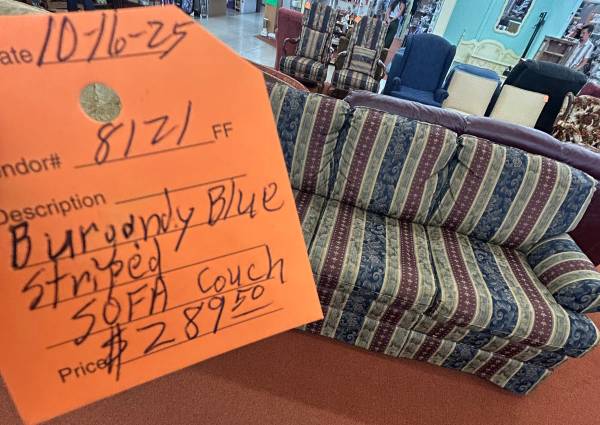 ate 10-16-25
ndor# 8121 FF
Description
Burgandy Blue
Striped
SOFA Couch
Price $289.50